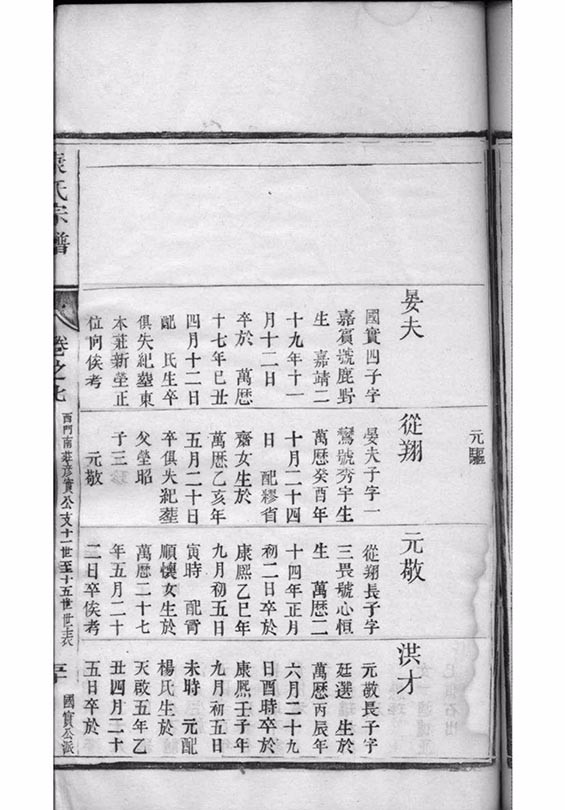 晏夫
國實四子字
嘉賓號鹿野
生 嘉靖二
十九年十一
月十二日
卒於 萬厯
十七年己丑
四月十二日
配 氏生卒
俱失紀塟東
木莊新塋正
位向俟考
元驅
從翔
晏夫子字一
鸞號秀宇生
萬厯癸酉年
十月二十四
日 配繆省
齋女生於
萬厯乙亥年
五月二十日
卒俱失紀塟
父塋昭
子三
元敬
元敬
從翔長子字
三畏號心恒
生 萬厯二
十四年正月
初二日卒於
康熙乙巳年
九月初五日
寅時 配
順懷女生於
萬厯二十七
年五月二十
二日卒俟考
洪才
元敬長子字
廷選 生於
萬厯丙辰年
六月二十九
日酉時卒於
康熙壬子年
九月初五日
未時 元配
楊氏生於
天啟五年乙
丑四月二十
五日卒於
氏宗譜
卷之七
西門南莊彥實公支十一世至十五世世表
國實公派